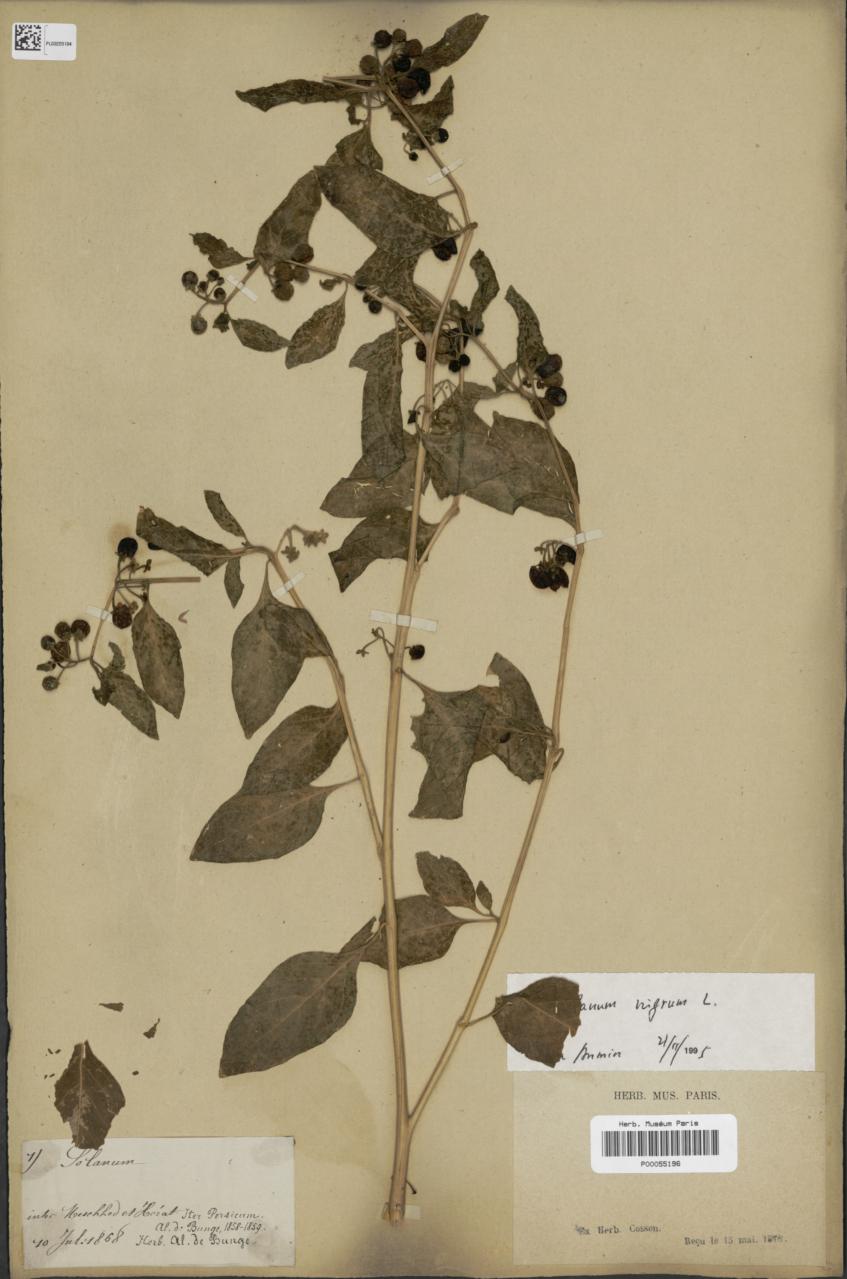 PL00055194
anum nigrum L.
1995
HERB. MUS. PARIS.
Herb. Muséum Paris
P00055196
Ex Herb. Cosson.
Reçu le 15 mai.
7/ Solanum
inter Meschhed et Herat Iter Persicum.
Al. de Bunge, 1858-1859.
10 Jul. 1868 Herb. Al. de Bunge